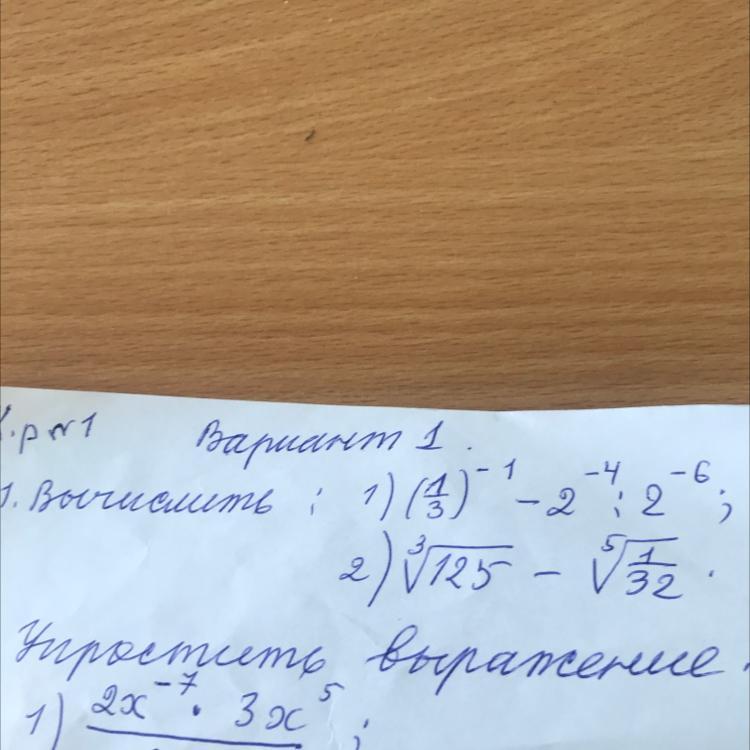 К.р №1 Вариант 1.
1. Вычислить : 1) (1/3)^-1 - 2^-4 : 2^-6 ;
2) ³√125 - ⁵√1/32 .
Упростить выражение.
1) 2x^-7 · 3x^5 ;